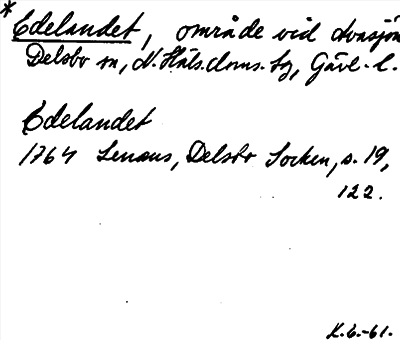 * Edelandet, område vid Avasjön
Delsbo sn, N. Häls. doms. tg, Gävl. l.
Edelandet
1764 Lenaus, Delsbo Socken, s. 19,
122.
K.G.-61.